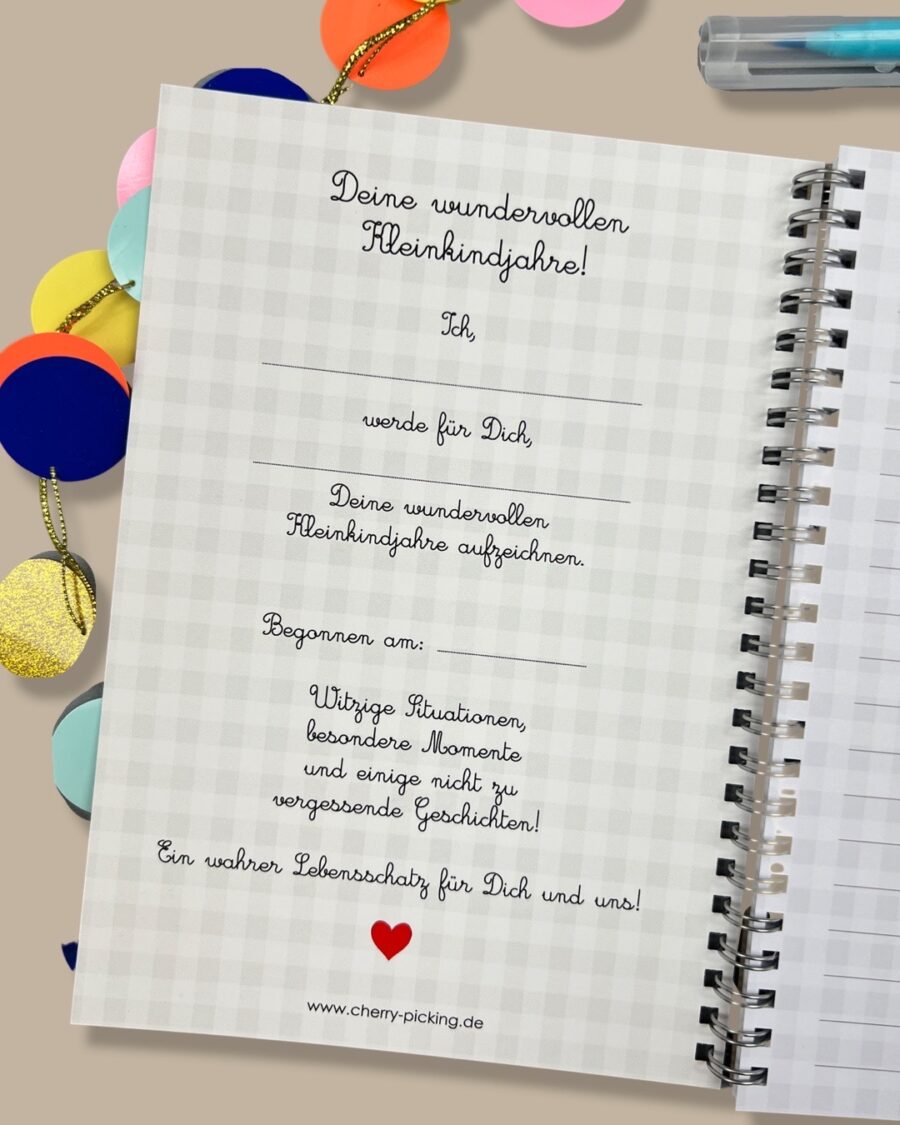 Deine wundervollen
Kleinkindjahre!
Ich,
werde für Dich,
Deine wundervollen
Kleinkindjahre aufzeichnen.
Begonnen am:
Witzige Situationen,
besondere Momente
und einige nicht zu
vergessende Geschichten!
Ein wahrer Lebensschatz für Dich und uns!
www.cherry-picking.de